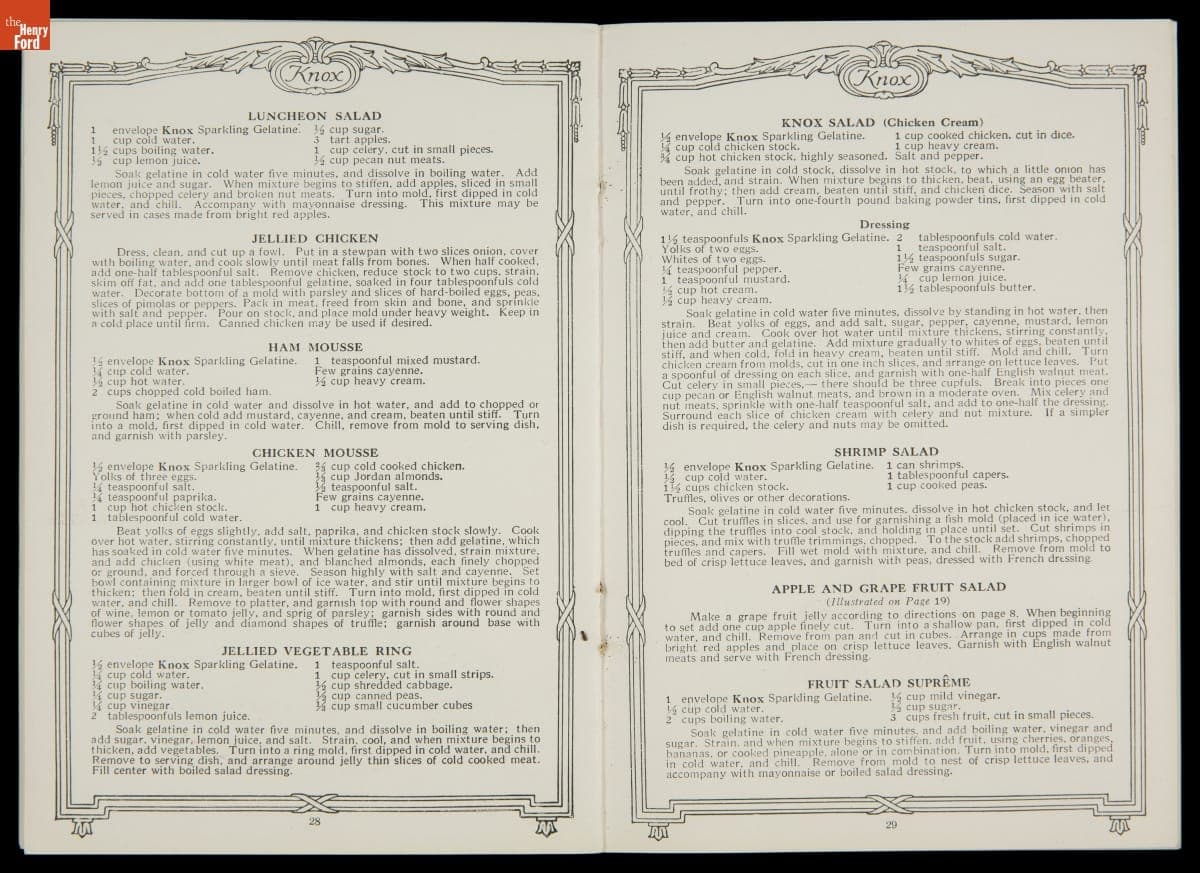 the
Henry
Ford
Knox
LUNCHEON SALAD
1 envelope Knox Sparkling Gelatine. ½ cup sugar.
1 cup cold water. 3 tart apples.
1½ cups boiling water. 1 cup celery, cut in small pieces.
½ cup lemon juice. ½ cup pecan nut meats.
Soak gelatine in cold water five minutes, and dissolve in boiling water. Add
lemon juice and sugar. When mixture begins to stiffen, add apples, sliced in small
pieces, chopped celery and broken nut meats. Turn into mold, first dipped in cold
water, and chill. Accompany with mayonnaise dressing. This mixture may be
served in cases made from bright red apples.
JELLIED CHICKEN
Dress, clean, and cut up a fowl. Put in a stewpan with two slices onion, cover
with boiling water, and cook slowly until meat falls from bones. When half cooked,
add one-half tablespoonful salt. Remove chicken, reduce stock to two cups, strain,
skim off fat, and add one tablespoonful gelatine, soaked in four tablespoonfuls cold
water. Decorate bottom of a mold with parsley and slices of hard-boiled eggs, peas,
slices of pimolas or peppers. Pack in meat, freed from skin and bone, and sprinkle
with salt and pepper. Pour on stock, and place mold under heavy weight. Keep in
a cold place until firm. Canned chicken may be used if desired.
HAM MOUSSE
½ envelope Knox Sparkling Gelatine. 1 teaspoonful mixed mustard.
¼ cup cold water. Few grains cayenne.
½ cup hot water. ½ cup heavy cream.
2 cups chopped cold boiled ham.
Soak gelatine in cold water and dissolve in hot water, and add to chopped or
ground ham; when cold add mustard, cayenne, and cream, beaten until stiff. Turn
into a mold, first dipped in cold water. Chill, remove from mold to serving dish,
and garnish with parsley.
CHICKEN MOUSSE
½ envelope Knox Sparkling Gelatine. ⅔ cup cold cooked chicken.
Yolks of three eggs. cup Jordan almonds.
¼ teaspoonful salt. ½ teaspoonful salt.
¼ teaspoonful paprika. Few grains cayenne.
1 cup hot chicken stock. 1 cup heavy cream.
1 tablespoonful cold water.
Beat yolks of eggs slightly, add salt, paprika, and chicken stock slowly. Cook
over hot water, stirring constantly, until mixture thickens; then add gelatine, which
has soaked in cold water five minutes. When gelatine has dissolved, strain mixture,
and add chicken (using white meat), and blanched almonds, each finely chopped
or ground, and forced through a sieve. Season highly with salt and cayenne. Set
bowl containing mixture in larger bowl of ice water, and stir until mixture begins to
thicken; then fold in cream, beaten until stiff. Turn into mold, first dipped in cold
water, and chill. Remove to platter, and garnish top with round and flower shapes
of wine, lemon or tomato jelly, and sprig of parsley; garnish sides with round and
flower shapes of jelly and diamond shapes of truffle; garnish around base with
cubes of jelly.
JELLIED VEGETABLE RING
½ envelope Knox Sparkling Gelatine. 1 teaspoonful salt.
¼ cup cold water. 1 cup celery, cut in small strips.
cup boiling water. ½ cup shredded cabbage.
¼ cup sugar. cup canned peas.
¼ cup vinegar cup small cucumber cubes
2 tablespoonfuls lemon juice.
Soak gelatine in cold water five minutes, and dissolve in boiling water; then
add sugar, vinegar, lemon juice, and salt. Strain, cool, and when mixture begins to
thicken, add vegetables. Turn into a ring mold, first dipped in cold water, and chill.
Remove to serving dish, and arrange around jelly thin slices of cold cooked meat.
Fill center with boiled salad dressing.
28
Knox
KNOX SALAD (Chicken Cream)
½ envelope Knox Sparkling Gelatine. 1 cup cooked chicken, cut in dice.
¼ cup cold chicken stock. 1 cup heavy cream.
¾ cup hot chicken stock, highly seasoned. Salt and pepper.
Soak gelatine in cold stock, dissolve in hot stock, to which a little onion has
been added, and strain. When mixture begins to thicken, beat, using an egg beater,
until frothy; then add cream, beaten until stiff, and chicken dice. Season with salt
and pepper. Turn into one-fourth pound baking powder tins, first dipped in cold
water, and chill.
Dressing
1½ teaspoonfuls Knox Sparkling Gelatine. 2 tablespoonfuls cold water.
Yolks of two eggs. 1 teaspoonful salt.
Whites of two eggs. 1½ teaspoonfuls sugar.
¼ teaspoonful pepper. Few grains cayenne.
1 teaspoonful mustard. ¼ cup lemon juice.
½ cup hot cream. 1½ tablespoonfuls butter.
½ cup heavy cream.
Soak gelatine in cold water five minutes, dissolve by standing in hot water, then
strain. Beat yolks of eggs, and add salt, sugar, pepper, cayenne, mustard, lemon
juice and cream. Cook over hot water until mixture thickens, stirring constantly,
then add butter and gelatine. Add mixture gradually to whites of eggs, beaten until
stiff, and when cold, fold in heavy cream, beaten until stiff. Mold and chill. Turn
chicken cream from molds, cut in one inch slices, and arrange on lettuce leaves. Put
a spoonful of dressing on each slice, and garnish with one-half English walnut meat.
Cut celery in small pieces,— there should be three cupfuls. Break into pieces one
cup pecan or English walnut meats, and brown in a moderate oven. Mix celery and
nut meats, sprinkle with one-half teaspoonful salt, and add to one-half the dressing.
Surround each slice of chicken cream with celery and nut mixture. If a simpler
dish is required, the celery and nuts may be omitted.
SHRIMP SALAD
½ envelope Knox Sparkling Gelatine. 1 can shrimps.
½ cup cold water. 1 tablespoonful capers.
1½ cups chicken stock. 1 cup cooked peas.
Truffles, olives or other decorations.
Soak gelatine in cold water five minutes, dissolve in hot chicken stock, and let
cool. Cut truffles in slices, and use for garnishing a fish mold (placed in ice water),
dipping the truffles into cool stock, and holding in place until set. Cut shrimps in
pieces, and mix with truffle trimmings, chopped. To the stock add shrimps, chopped
truffles and capers. Fill wet mold with mixture, and chill. Remove from mold to
bed of crisp lettuce leaves, and garnish with peas, dressed with French dressing.
APPLE AND GRAPE FRUIT SALAD
(Illustrated on Page 19)
Make a grape fruit jelly according to directions on page 8. When beginning
to set add one cup apple finely cut. Turn into a shallow pan, first dipped in cold
water, and chill. Remove from pan and cut in cubes. Arrange in cups made from
bright red apples and place on crisp lettuce leaves. Garnish with English walnut
meats and serve with French dressing.
FRUIT SALAD SUPRÊME
1 envelope Knox Sparkling Gelatine. ½ cup mild vinegar.
½ cup cold water. ½ cup sugar.
2 cups boiling water. 3 cups fresh fruit, cut in small pieces.
Soak gelatine in cold water five minutes, and add boiling water, vinegar and
sugar. Strain, and when mixture begins to stiffen, add fruit, using cherries, oranges,
bananas, or cooked pineapple, alone or in combination. Turn into mold, first dipped
in cold water, and chill. Remove from mold to nest of crisp lettuce leaves, and
accompany with mayonnaise or boiled salad dressing.
29